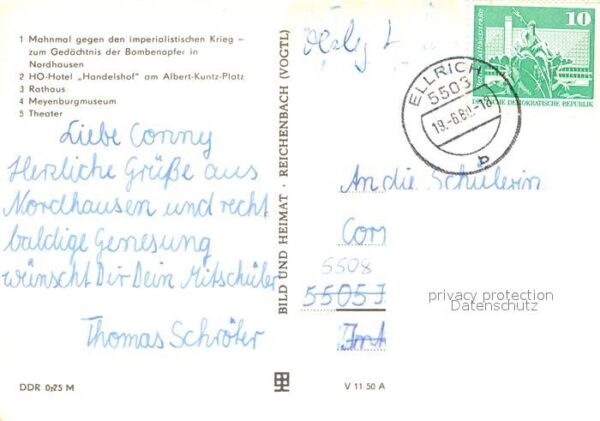 1 Mahnmal gegen den imperialistischen Krieg –
zum Gedächtnis der Bombenopfer in
Nordhausen
2 HO-Hotel „Handelshof" am Albert-Kuntz-Platz
3 Rathaus
4 Meyenburgmuseum
5 Theater
Liebe Conny
Herzliche Grüße aus
Nordhausen und recht
baldige Genesung
wünscht Dir Dein Mitschüler
Thomas Schröter
DDR 0,25 M
BILD UND HEIMAT · REICHENBACH (VOGTL)
V 11 50 A
10
DEUTSCHE DEMOKRATISCHE REPUBLIK
ELLRICH
5503
b
An die Schülerin
5508
5505
privacy protection
Datenschutz